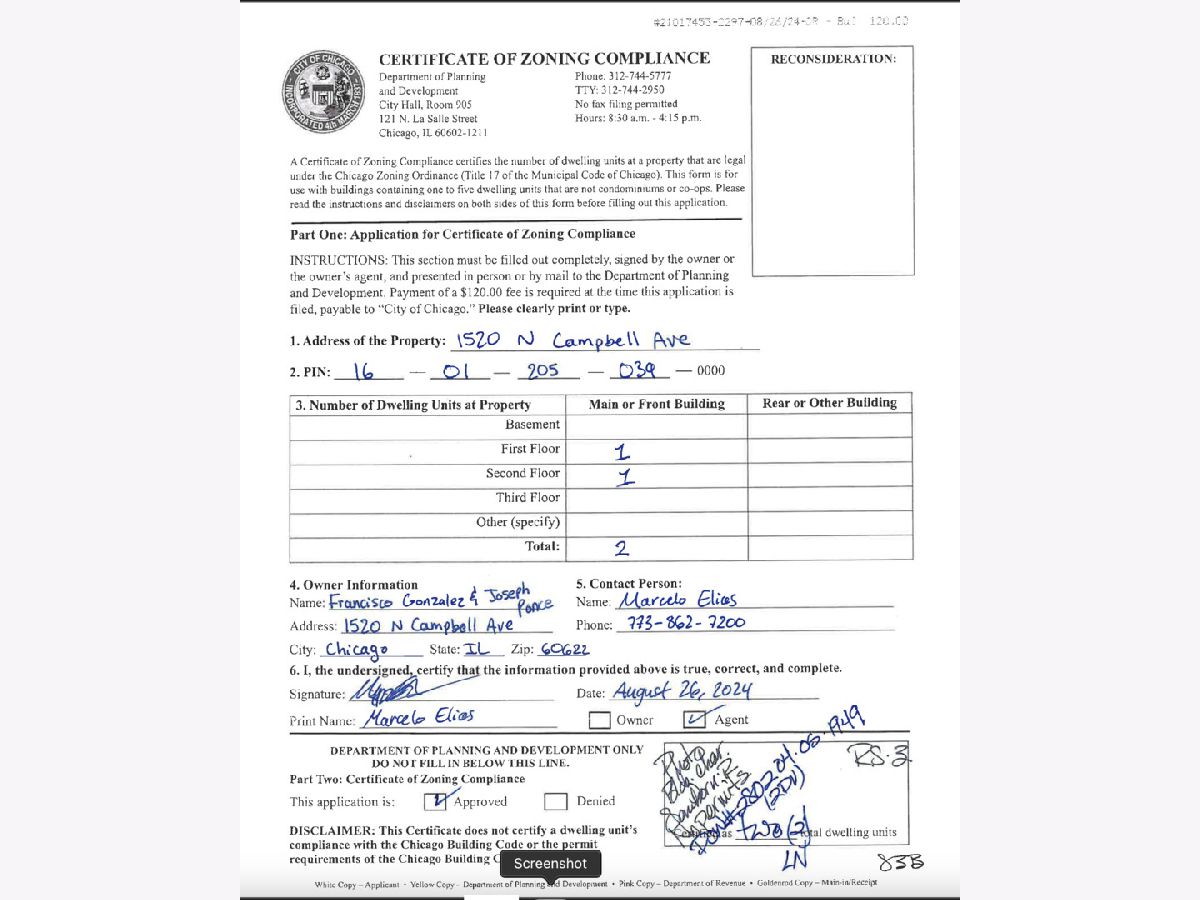 #21017453-2297-08/26/24-CR - Bul 120.00
CITY OF CHICAGO
INCORPORATED 4th MARCH 1837
CERTIFICATE OF ZONING COMPLIANCE
Department of Planning
and Development
City Hall, Room 905
121 N. La Salle Street
Chicago, IL 60602-1211
Phone: 312-744-5777
TTY: 312-744-2950
No fax filing permitted
Hours: 8:30 a.m. - 4:15 p.m.
RECONSIDERATION:
A Certificate of Zoning Compliance certifies the number of dwelling units at a property that are legal
under the Chicago Zoning Ordinance (Title 17 of the Municipal Code of Chicago). This form is for
use with buildings containing one to five dwelling units that are not condominiums or co-ops. Please
read the instructions and disclaimers on both sides of this form before filling out this application.
Part One: Application for Certificate of Zoning Compliance
INSTRUCTIONS: This section must be filled out completely, signed by the owner or
the owner's agent, and presented in person or by mail to the Department of Planning
and Development. Payment of a $120.00 fee is required at the time this application is
filed, payable to "City of Chicago." Please clearly print or type.
1. Address of the Property: 1520 N Campbell Ave
2. PIN: 16 — 01 — 205 — 039 — 0000
3. Number of Dwelling Units at Property Main or Front Building Rear or Other Building
Basement
First Floor 1
Second Floor 1
Third Floor
Other (specify)
Total: 2
4. Owner Information
Name: Francisco Gonzalez & Joseph Ponce
Address: 1520 N Campbell Ave
City: Chicago State: IL Zip: 60622
5. Contact Person:
Name: Marcelo Elias
Phone: 773-862-7200
6. I, the undersigned, certify that the information provided above is true, correct, and complete.
Signature:
Date: August 26, 2024
Print Name: Marcelo Elias
Owner Agent
DEPARTMENT OF PLANNING AND DEVELOPMENT ONLY
DO NOT FILL IN BELOW THIS LINE.
Part Two: Certificate of Zoning Compliance
This application is: Approved Denied
DISCLAIMER: This Certificate does not certify a dwelling unit's
compliance with the Chicago Building Code or the permit
requirements of the Chicago Building
Photo
Bldg. Char.
Sanborn
Permits
04.06.1949
(2DU)
RS-3
Certified as two (2) total dwelling units
LN
83B
Screenshot
White Copy – Applicant • Yellow Copy – Department of Planning and Development • Pink Copy – Department of Revenue • Goldenrod Copy – Main-in/Receipt